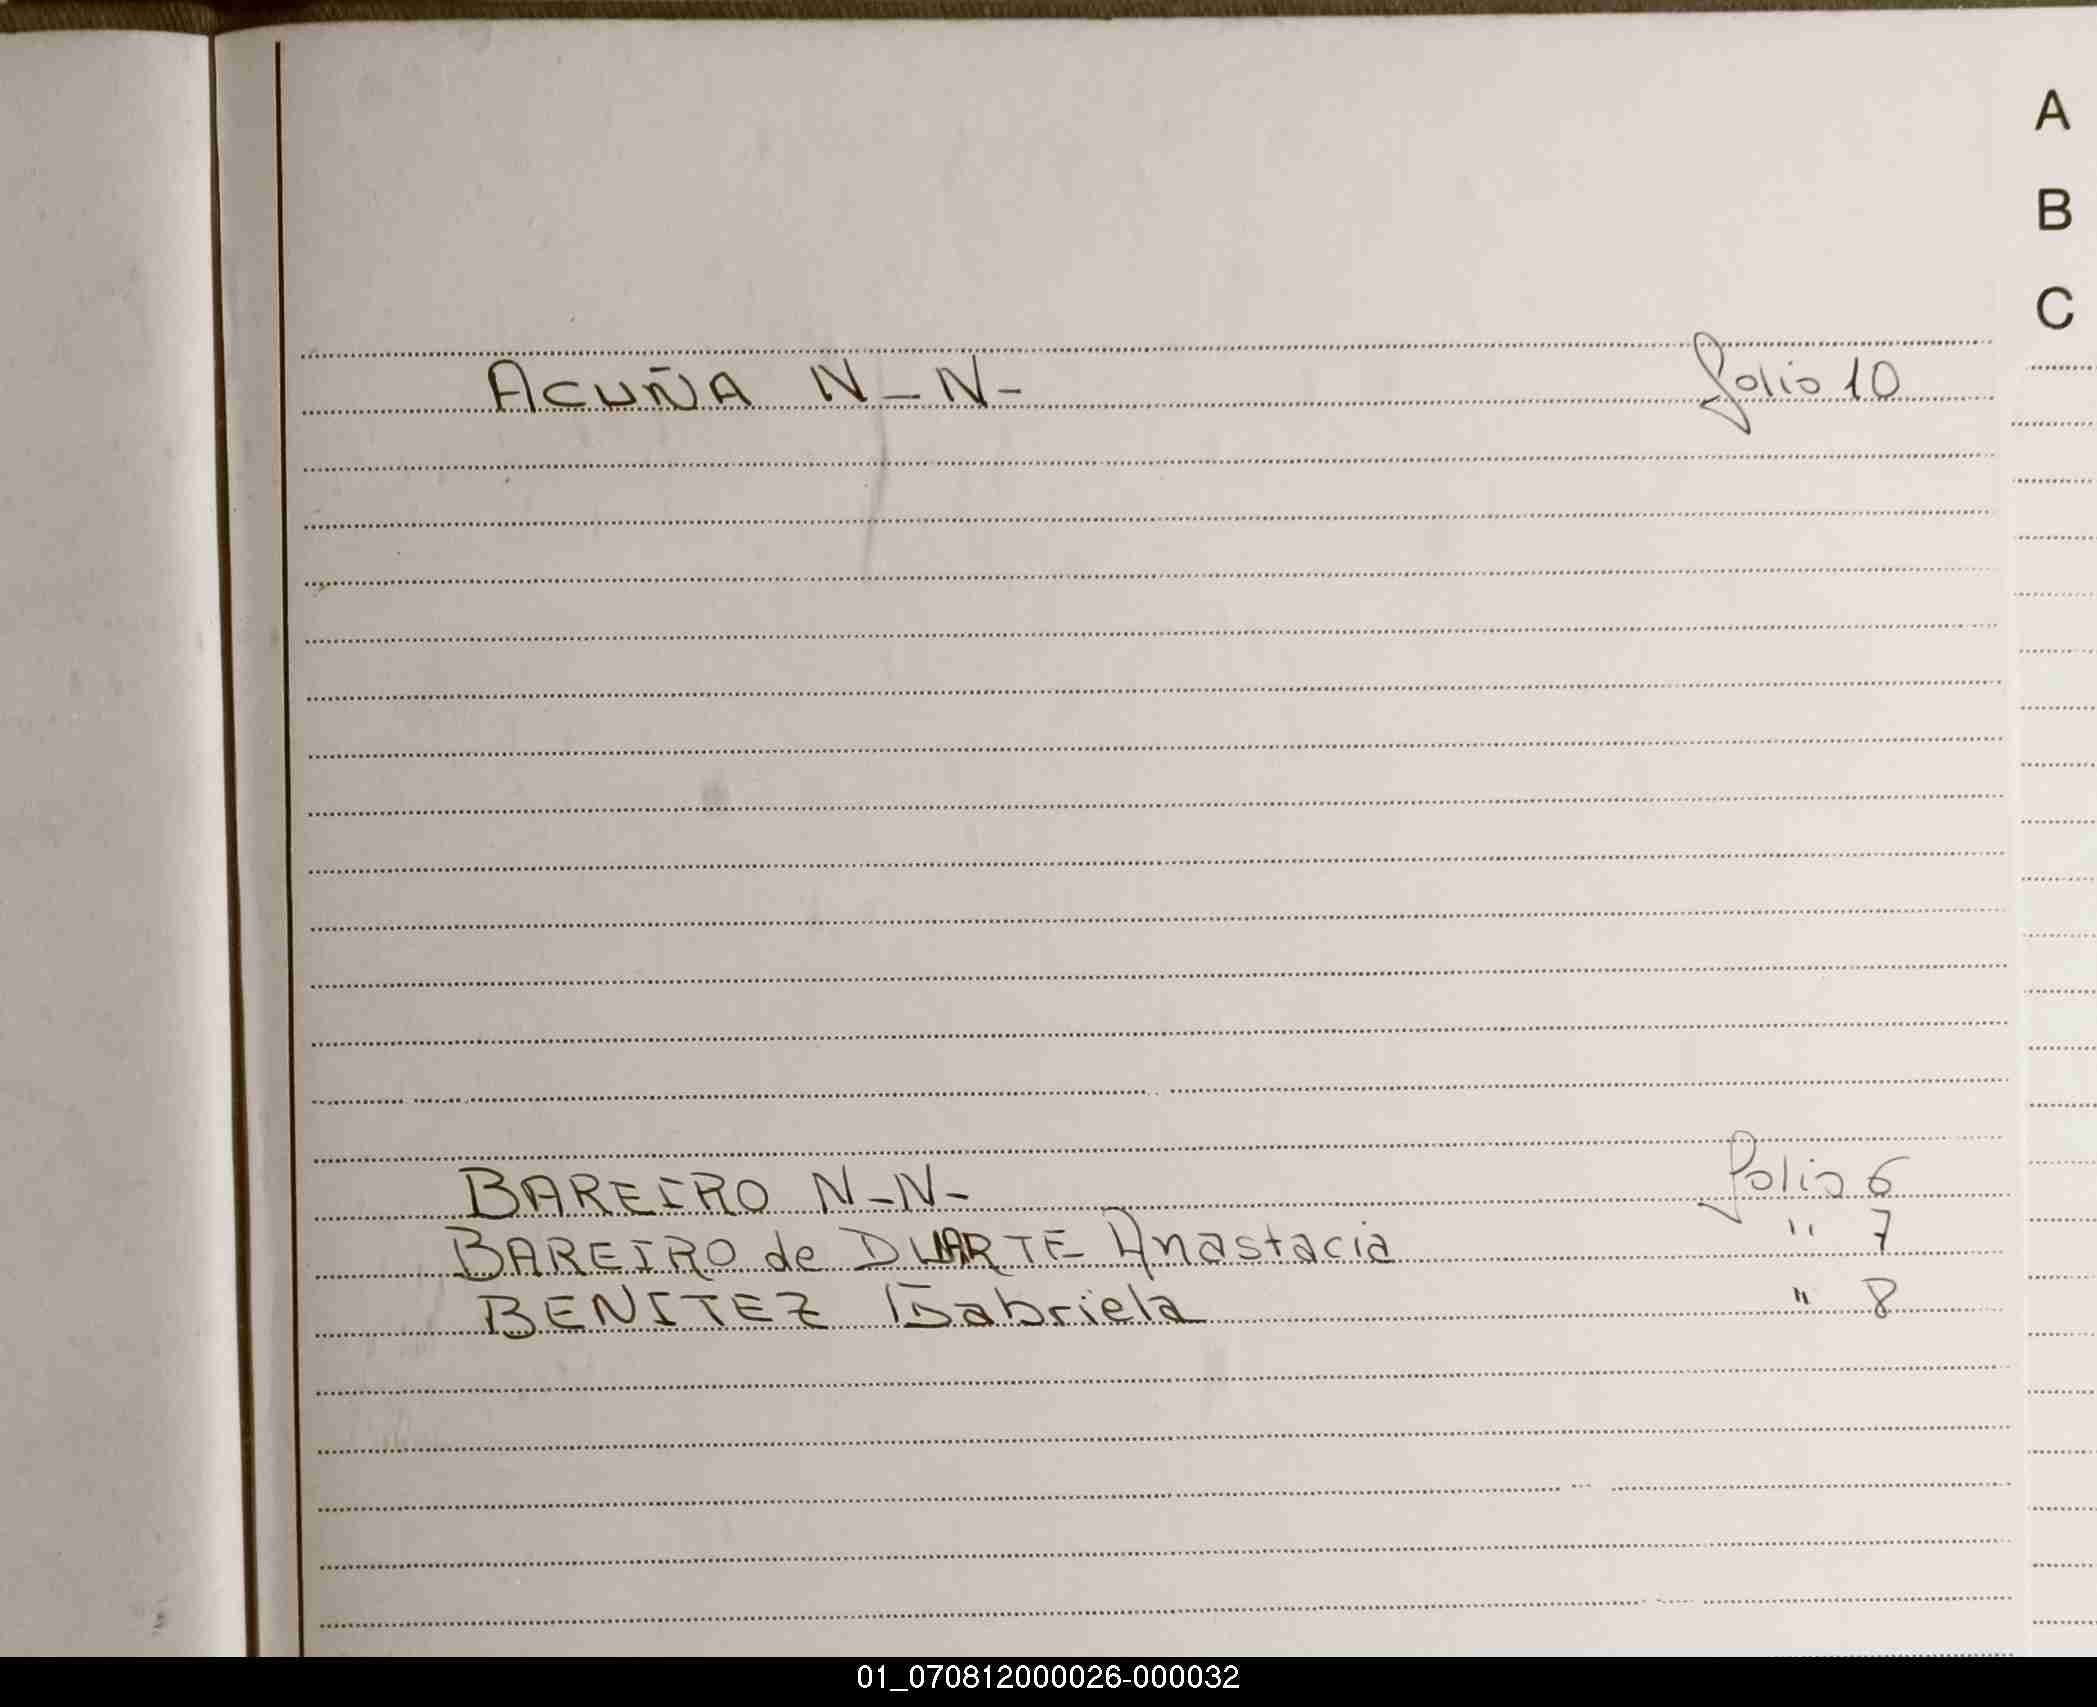 A
B
C
ACUÑA N-N- folio 10
BAREIRO N-N- folio 6
BAREIRO de DUARTE Anastacia " 7
BENITEZ Gabriela " 8
01_070812000026-000032